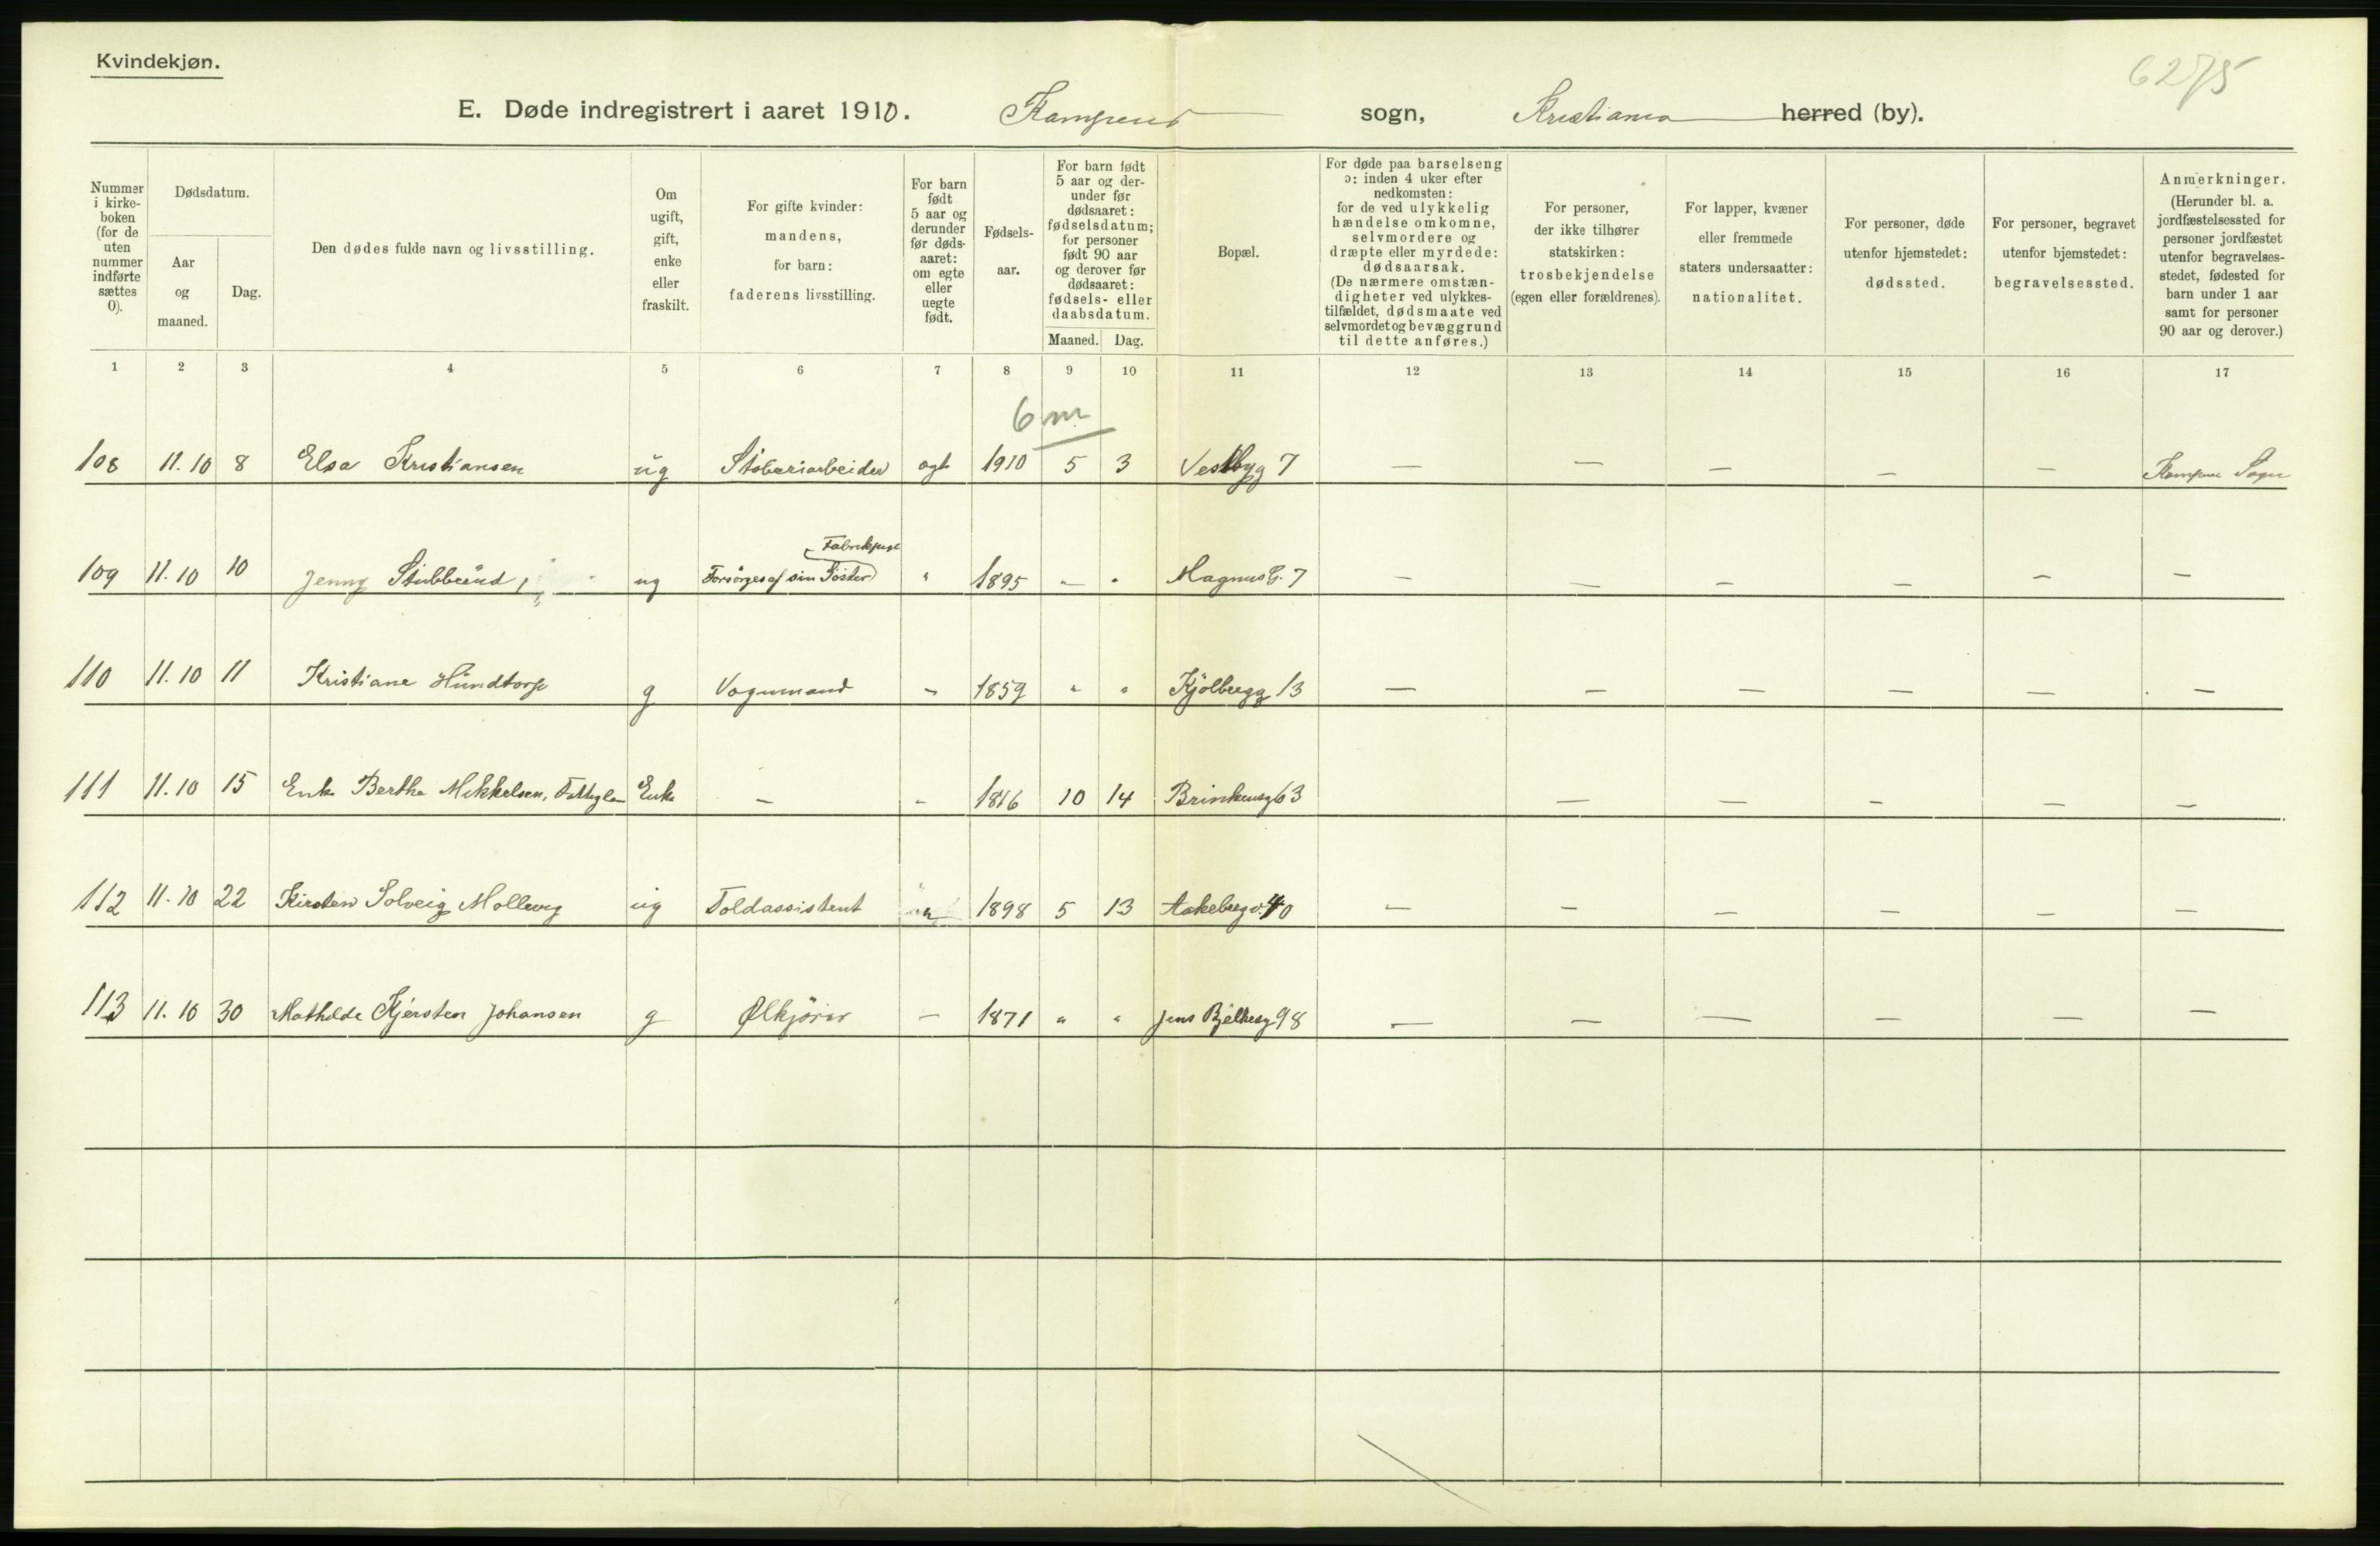 Kvindekjøn.
6275
E. Døde indregistrert i aaret 1910. Kampens sogn, Kristiania herred (by).
Nummer i kirke-boken (for de uten nummer indførte sættes 0).
Dødsdatum.
Aar og maaned.
Dag.
Den dødes fulde navn og livsstilling.
Om ugift, gift, enke eller fraskilt.
For gifte kvinder: mandens, for barn: faderens livsstilling.
For barn født 5 aar og derunder før døds-aaret: om egte eller uegte født.
Fødsels-aar.
For barn født 5 aar og der-under før dødsaaret: fødselsdatum; for personer født 90 aar og derover før dødsaaret: fødsels- eller daabsdatum.
Maaned. Dag.
Bopæl.
For døde paa barselseng ɔ: inden 4 uker efter nedkomsten: for de ved ulykkelig hændelse omkomne, selvmordere og dræpte eller myrdede: dødsaarsak. (De nærmere omstæn-digheter ved ulykkes-tilfældet, dødsmaate ved selvmordet og bevæggrund til dette anføres.)
For personer, der ikke tilhører statskirken: trosbekjendelse (egen eller forældrenes).
For lapper, kvæner eller fremmede staters undersaatter: nationalitet.
For personer, døde utenfor hjemstedet: dødssted.
For personer, begravet utenfor bjemstedet: begravelsessted.
Anmerkninger. (Herunder bl. a. jordfæstelsessted for personer jordfæstet utenfor begravelses-stedet, fødested for barn under 1 aar samt for personer 90 aar og derover.)
1 2 3 4 5 6 7 8 9 10 11 12 13 14 15 16 17
6 m
108 11.10 8 Elsa Kristiansen ug Støberiarbeider egt 1910 5 3 Vestbyg 7 — — — — — Kampens Sogn
109 11.10 10 Jenny Stubberud, ug Forsörges af sin Söster " 1895 " " Magnus G. 7 — — — — — —
110 11.10 11 Kristiane Hundtorp g Vognmand - 1859 " " Kjölbergg 13 — — — — — —
111 11.10 15 Enke Bertha Mikkelsen, Enke — - 1816 10 14 Brinkensg 63 — — — — —
112 11.10 22 Kirsten Solveig ug Toldassistent 1898 5 13 Aakebergv. 40 — — — — — —
113 11.10 30 Mathilde Kjersten Johansen g Ølkjörer — 1871 " " Jens Bjelkesg 98 — — — — — —